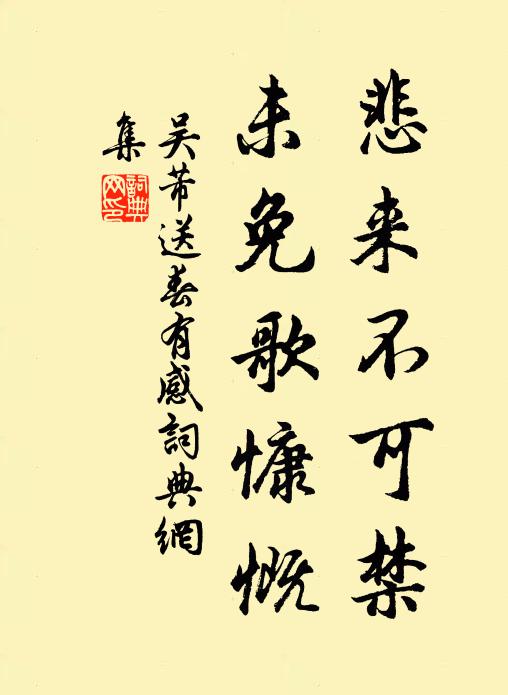 悲来不可禁
未免歌慷慨
吴芾送春有感詞典網
集
詞典网印